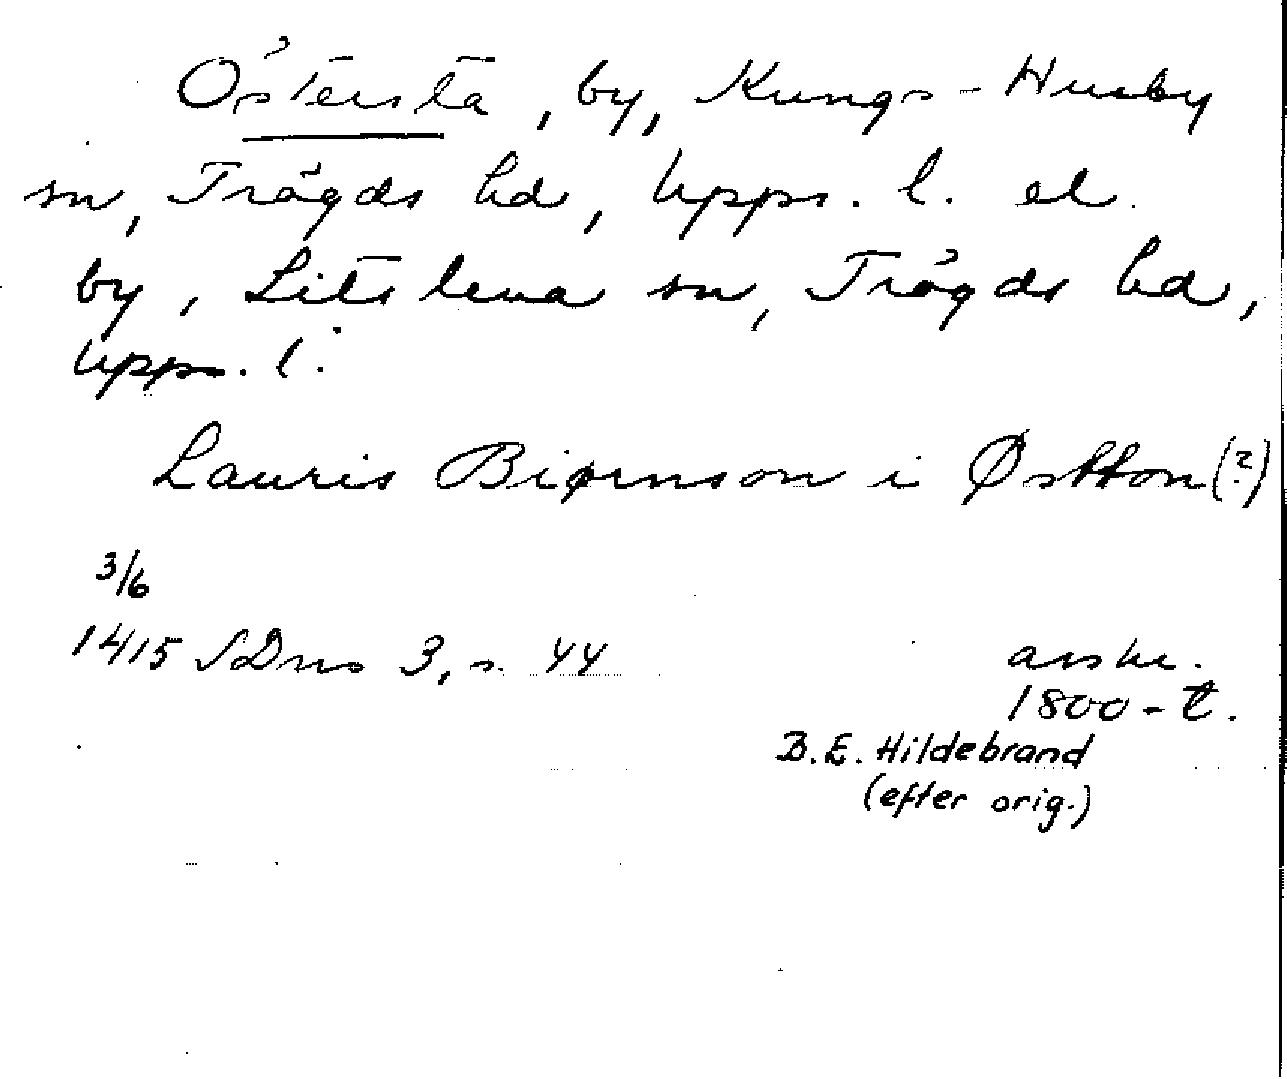 Östersta, by, Kungs-Husby
sn, Trögds hd, Upps. l. el.
by, Litslena sn, Trögds hd,
Upps. l.
Lauris Biørnson i Østton (?)
3/6
1415 SDns 3, s. 44
avskr.
1800-t.
B.E. Hildebrand
(efter orig.)